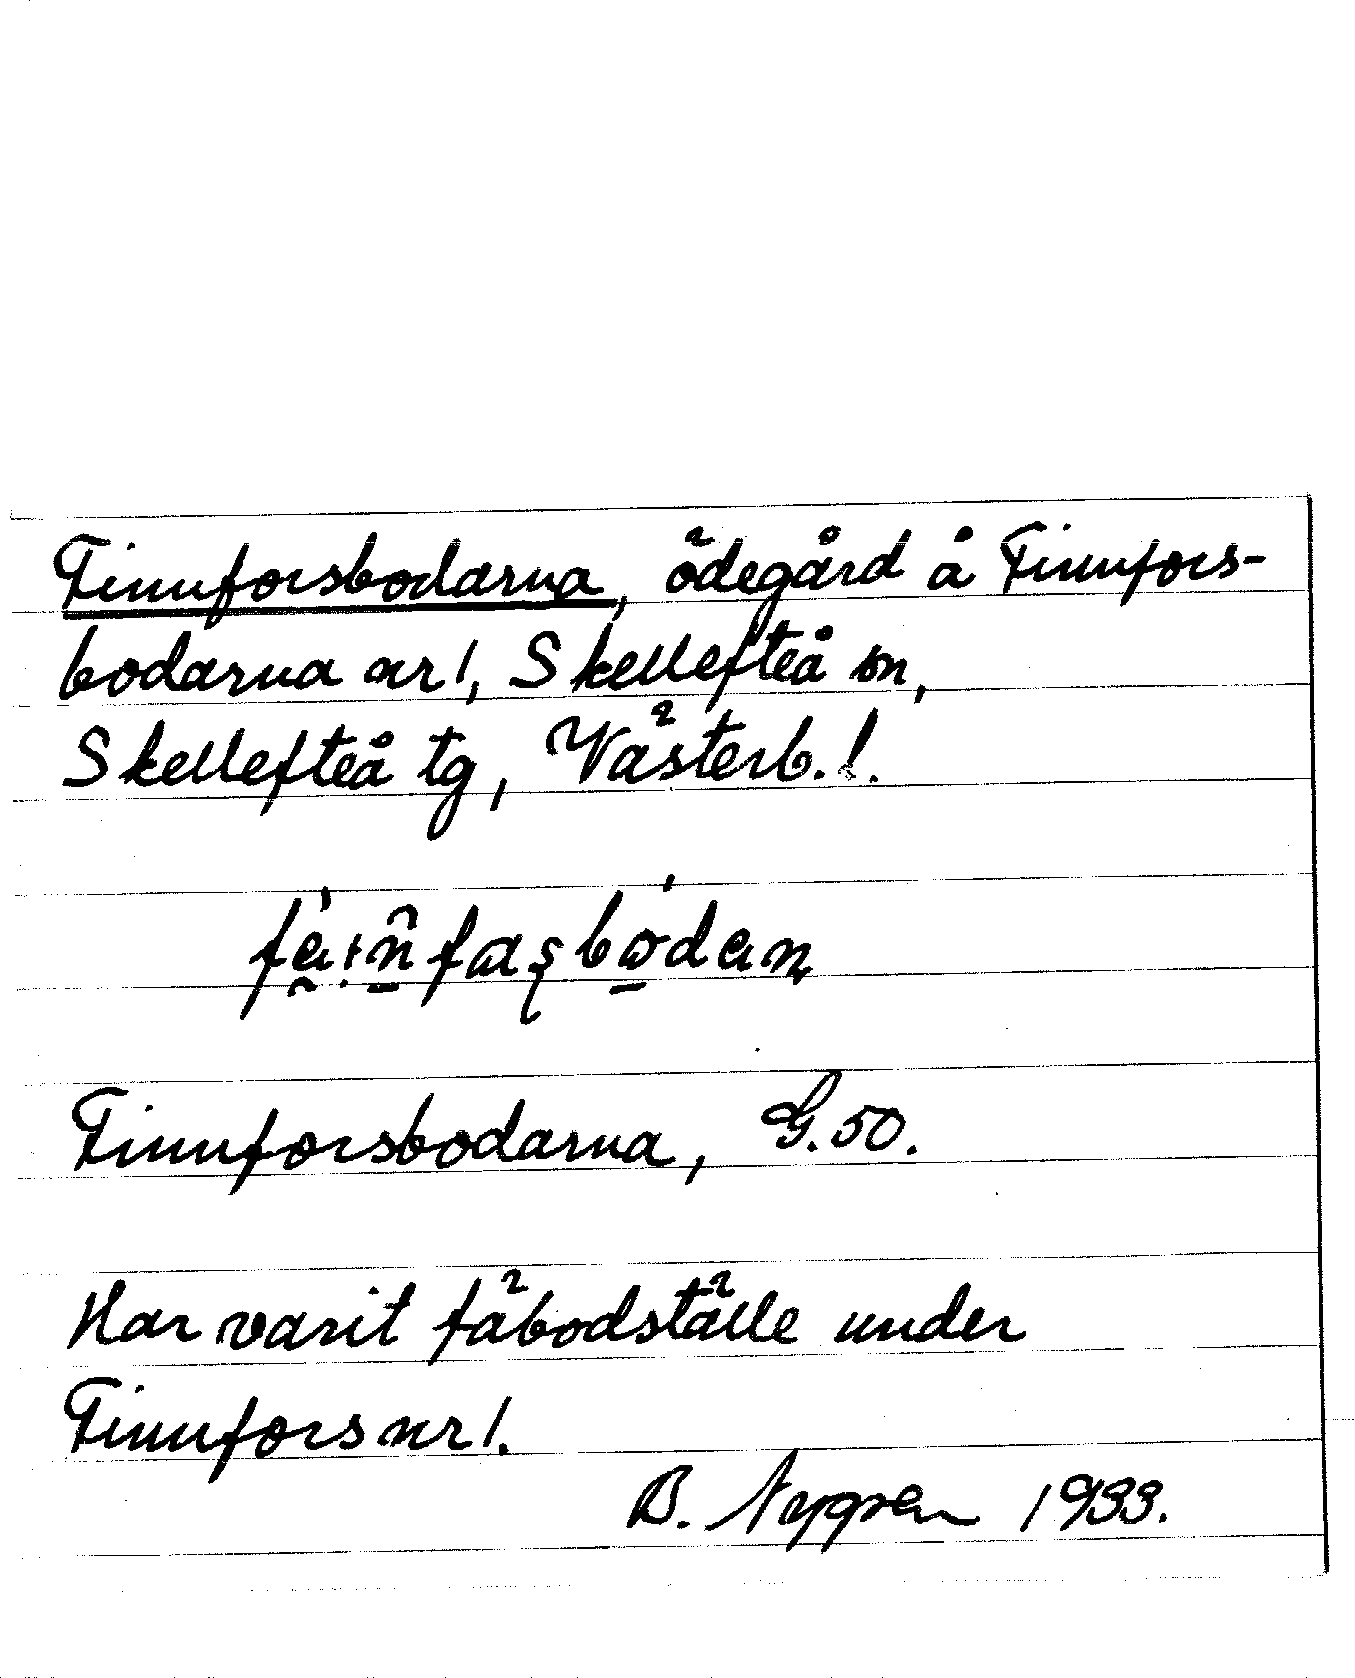 Finnforsbodarna, ödegård å Finnfors-
bodarna nr 1, Skellefteå sn,
Skellefteå tg, Västerb. l.
Finnforsbodarna, G. 50.
Har varit fäbodställe under
Finnfors nr 1.
B. Nygren 1933.